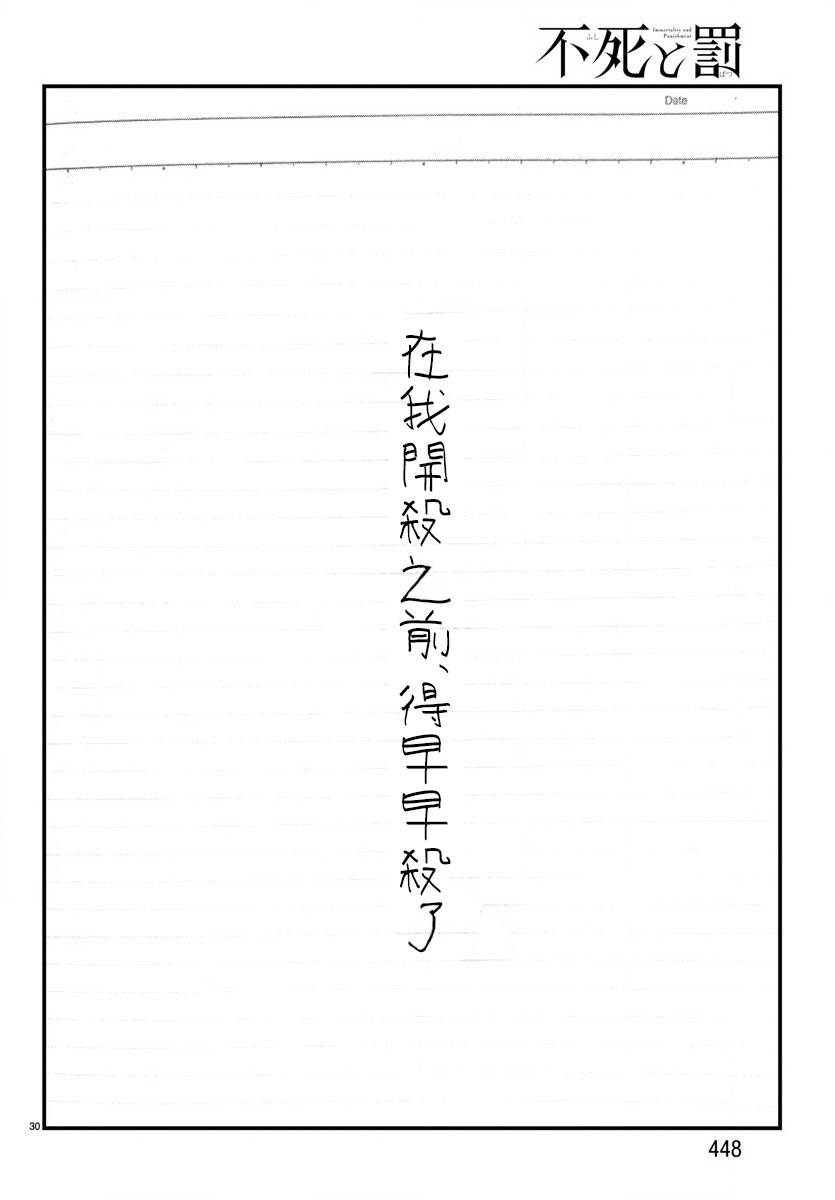 不死と罰
ふし
ばつ
Immortality and
Punishment
Date
在我開殺之前、得早早殺了
30
448